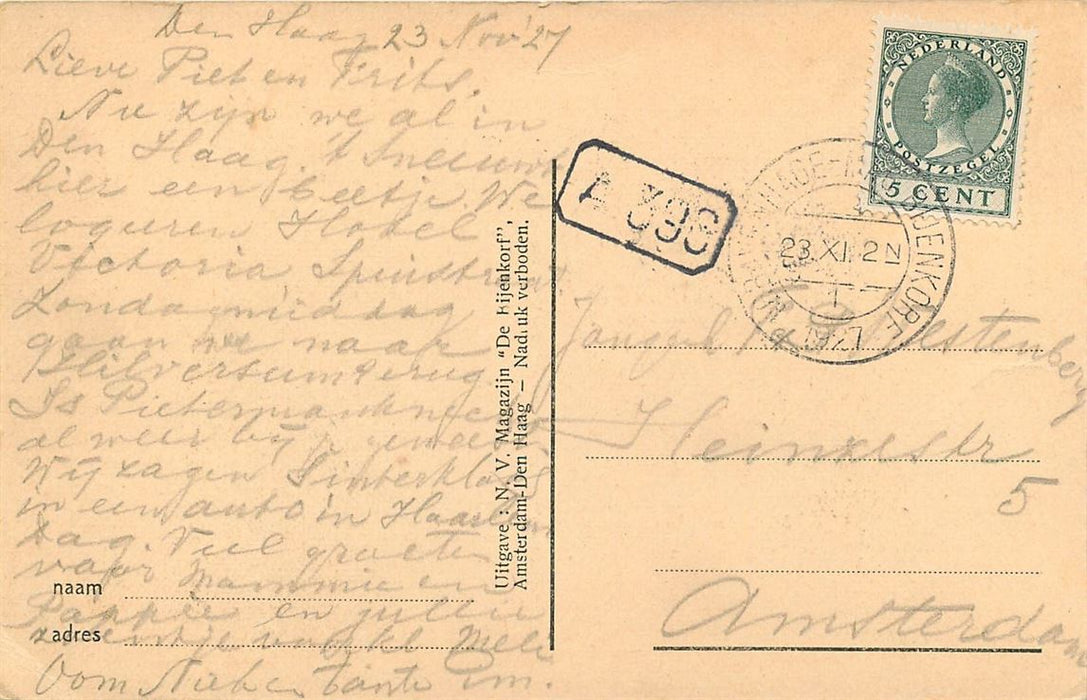 Den Haag 23 Nov '27
Lieve Piet en Frits.
Nu zijn we al in
Den Haag 't Sneeuwt
hier een beetje. We
loguren Hotel
Victoria Spuistraat
Zondagmiddag
gaan we naar
Hilversum terug
Is Pieterman
al weer bij j geweest.
Wij zagen Sinterklaas
in een auto in Haarlem
Dag. Veel groeten
voor Mammie en
Pappie en jullie
Oom en tante Em.
naam
adres
Uitgave : N. V. Magazijn "De Bijenkorf",
Amsterdam-Den Haag — Nadruk verboden.
A 396
NEDERLAND
POSTZEGEL
5 CENT
BIJENKORF
23.XI. 2 N
1927
Westenberg
Heinzestr
5
Amsterdam